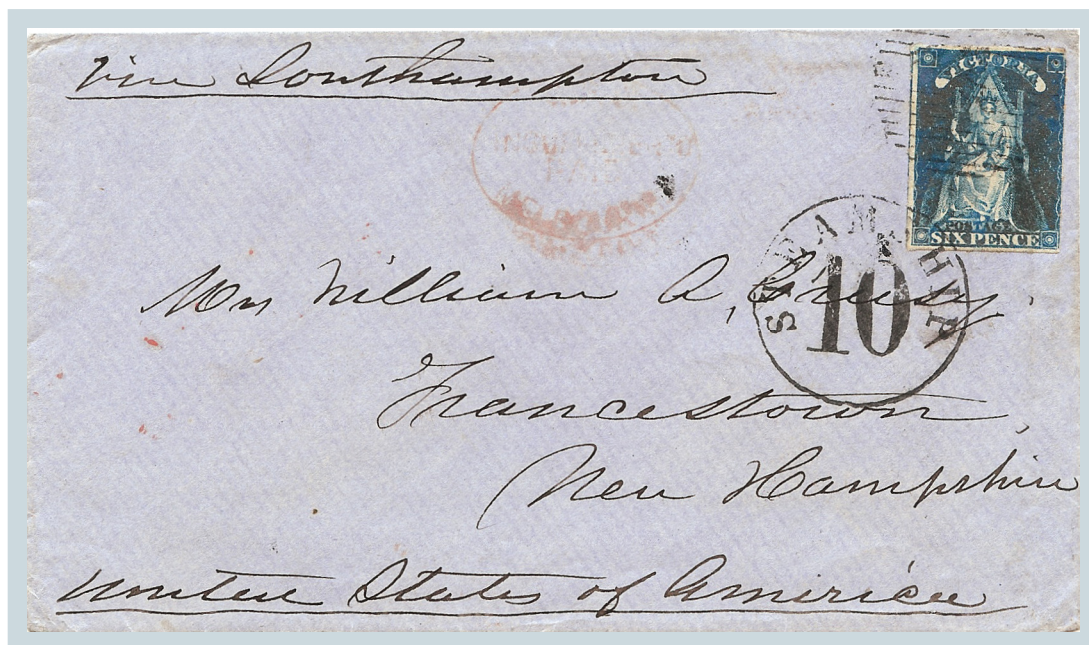 via Southampton
VICTORIA
POSTAGE
SIX PENCE
PAID
MELBOURNE
STEAMSHIP
10
William A.
Francestown,
New Hampshire
United States of America